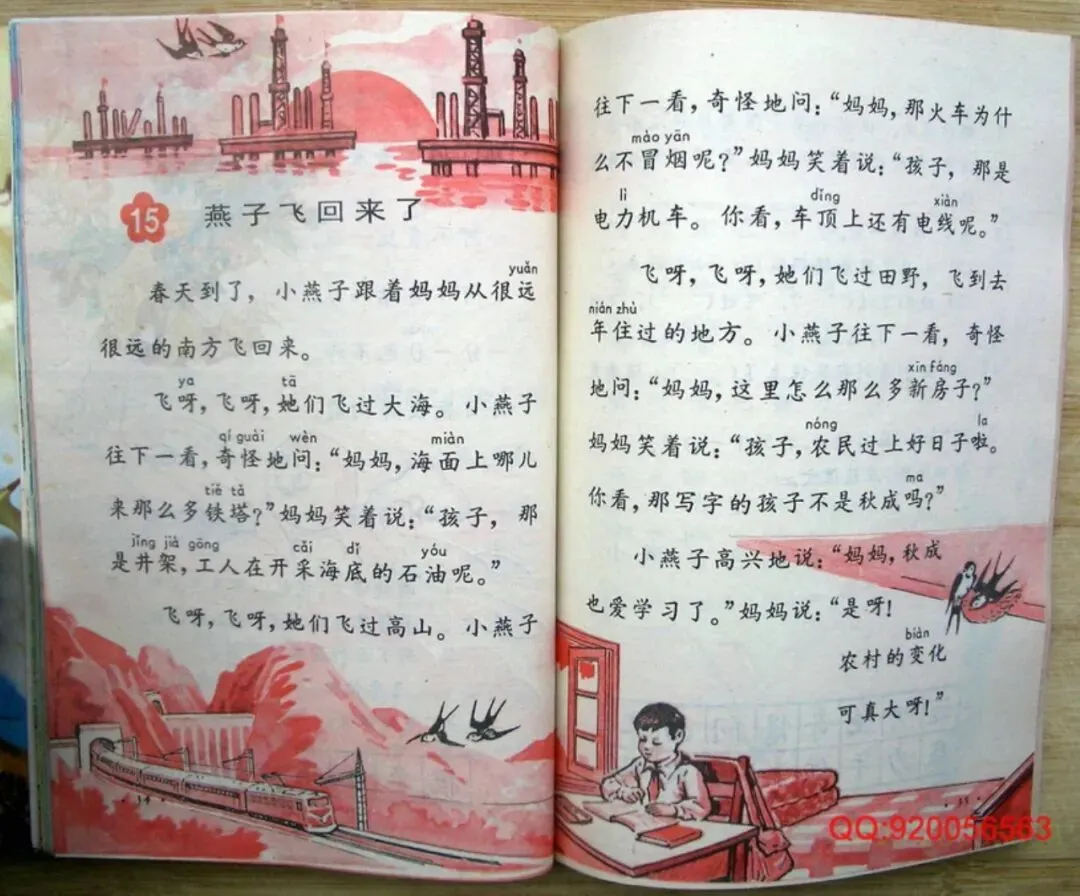 15 燕子飞回来了
yuǎn
春天到了，小燕子跟着妈妈从很远
很远的南方飞回来。
ya tā
飞呀，飞呀，她们飞过大海。小燕子
qí guài wèn miàn
往下一看，奇怪地问：“妈妈，海面上哪儿
tiě tǎ
来那么多铁塔？”妈妈笑着说：“孩子，那
jǐng jià gōng cǎi dǐ yóu
是井架，工人在开采海底的石油呢。”
飞呀，飞呀，她们飞过高山。小燕子
· 34 ·
往下一看，奇怪地问：“妈妈，那火车为什
mào yān
么不冒烟呢？”妈妈笑着说：“孩子，那是
lì dǐng xiàn
电力机车。你看，车顶上还有电线呢。”
飞呀，飞呀，她们飞过田野，飞到去
nián zhù
年住过的地方。小燕子往下一看，奇怪
xīn fáng
地问：“妈妈，这里怎么那么多新房子？”
nóng la
妈妈笑着说：“孩子，农民过上好日子啦。
ma
你看，那写字的孩子不是秋成吗？”
小燕子高兴地说：“妈妈，秋成
也爱学习了。”妈妈说：“是呀！
biàn
农村的变化
可真大呀！”
· 35 ·
QQ:920056563